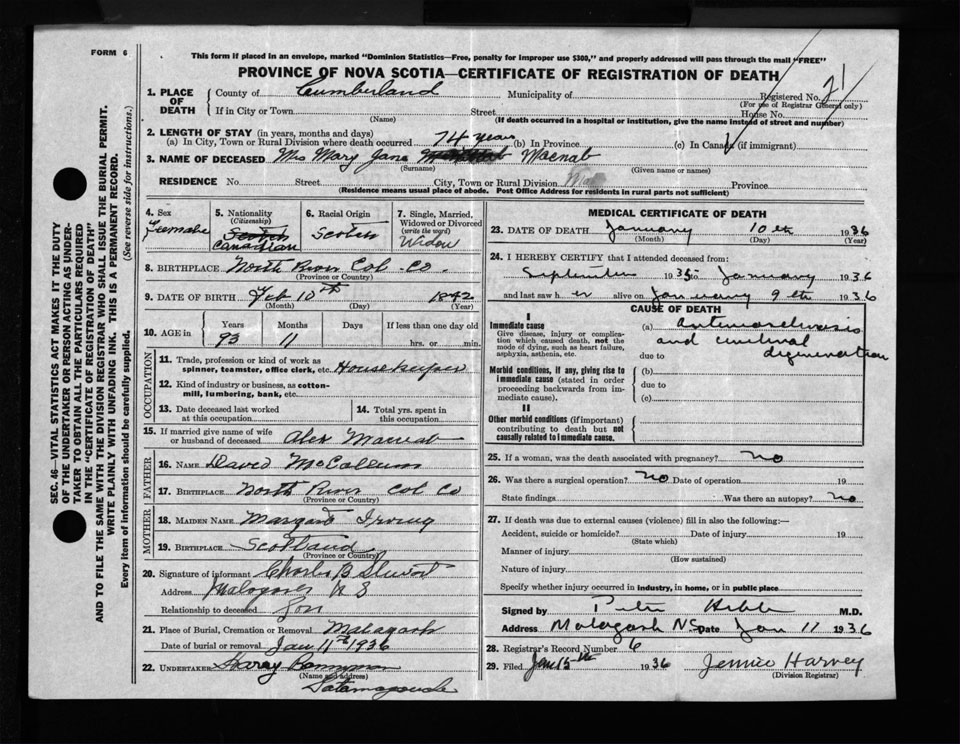 FORM 6
This form if placed in an envelope, marked "Dominion Statistics—Free, penalty for improper use $300," and properly addressed will pass through the mail "FREE"
PROVINCE OF NOVA SCOTIA—CERTIFICATE OF REGISTRATION OF DEATH
SEC. 46—VITAL STATISTICS ACT MAKES IT THE DUTY
OF THE UNDERTAKER OR PERSON ACTING AS UNDER-
TAKER TO OBTAIN ALL THE PARTICULARS REQUIRED
IN THE "CERTIFICATE OF REGISTRATION OF DEATH"
AND TO FILE THE SAME WITH THE DIVISION REGISTRAR WHO SHALL ISSUE THE BURIAL PERMIT.
WRITE PLAINLY WITH UNFADING INK. THIS IS A PERMANENT RECORD.
Every item of information should be carefully supplied. (See reverse side for instructions.)
1. PLACE OF DEATH County of Cumberland Municipality of Registered No. 21
(For use of Registrar General only)
If in City or Town Street House No.
(Name) (If death occurred in a hospital or institution, give the name instead of street and number)
2. LENGTH OF STAY (in years, months and days)
(a) In City, Town or Rural Division where death occurred 74 years (b) In Province (c) In Canada (if immigrant)
3. NAME OF DECEASED Mrs Mary Jane Macnab
(Surname) (Given name or names)
RESIDENCE No. Street City, Town or Rural Division Province
(Residence means usual place of abode. Post Office Address for residents in rural parts not sufficient)
4. Sex Female
5. Nationality (Citizenship) Scotch Canadian
6. Racial Origin Scotch
7. Single, Married, Widowed or Divorced (write the word) Widow
8. BIRTHPLACE North River Col. Co.
(Province or Country)
9. DATE OF BIRTH Feb 10th 1842
(Month) (Day) (Year)
10. AGE in Years Months Days If less than one day old
93 11 hrs. or min.
OCCUPATION
11. Trade, profession or kind of work as spinner, teamster, office clerk, etc. Housekeeper
12. Kind of industry or business, as cotton-mill, lumbering, bank, etc.
13. Date deceased last worked at this occupation
14. Total yrs. spent in this occupation
15. If married give name of wife or husband of deceased Alex Macnab
FATHER
16. NAME David McCallum
17. BIRTHPLACE North River Col Co
(Province or Country)
MOTHER
18. MAIDEN NAME Margaret Irving
19. BIRTHPLACE Scotland
(Province or Country)
20. Signature of informant Charles B Stewart
Address Malagash N S
Relationship to deceased Son
21. Place of Burial, Cremation or Removal Malagash
Date of burial or removal Jan 11th 1936
22. UNDERTAKER
(Name and address)
Tatamagouche
MEDICAL CERTIFICATE OF DEATH
23. DATE OF DEATH January 10th 1936
(Month) (Day) (Year)
24. I HEREBY CERTIFY that I attended deceased from:
September 1935 to January 1936
and last saw h er alive on January 9th 1936
CAUSE OF DEATH
I
Immediate cause
Give disease, injury or complication which caused death, not the mode of dying, such as heart failure, asphyxia, asthenia, etc.
(a) arteriosclerosis
and cerebral
due to degeneration
Morbid conditions, if any, giving rise to immediate cause (stated in order proceeding backwards from immediate cause).
(b)
due to
(c)
II
Other morbid conditions (if important) contributing to death but not causally related to immediate cause.
25. If a woman, was the death associated with pregnancy? no
26. Was there a surgical operation? no Date of operation 19
State findings Was there an autopsy? no
27. If death was due to external causes (violence) fill in also the following:—
Accident, suicide or homicide? Date of injury 19
(State which)
Manner of injury
(How sustained)
Nature of injury
Specify whether injury occurred in industry, in home, or in public place
Signed by Peter M.D.
Address Malagash NS Date Jan 11 1936
28. Registrar's Record Number 6
29. Filed Jan 15th 1936 Jennie Harvey
(Division Registrar)